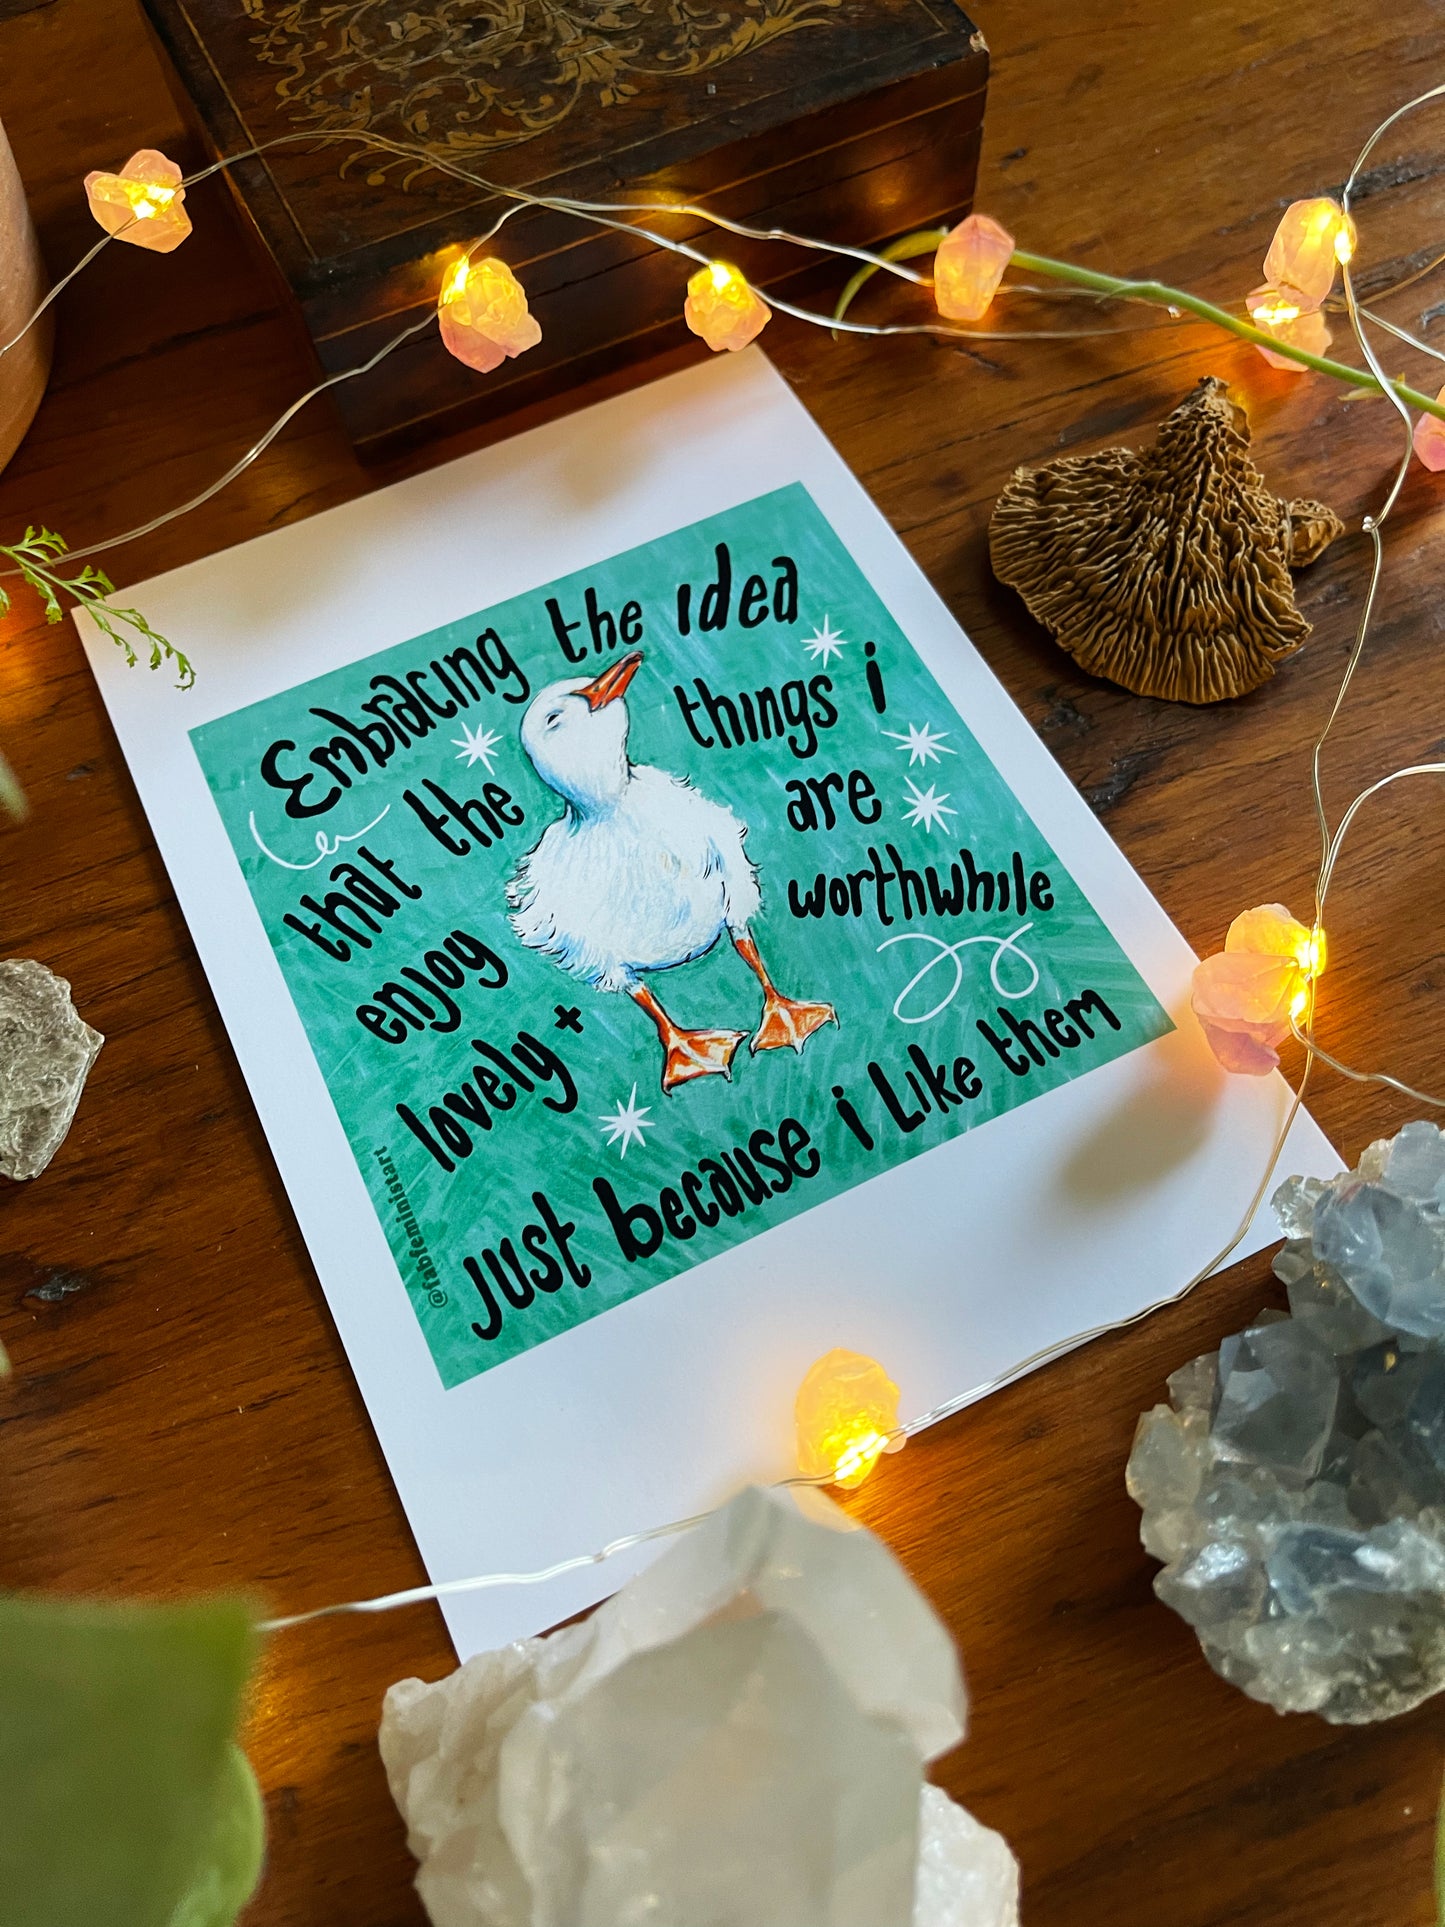 Embracing the idea
that the things i
enjoy are
lovely + worthwhile
just because i like them
@fabfeministart